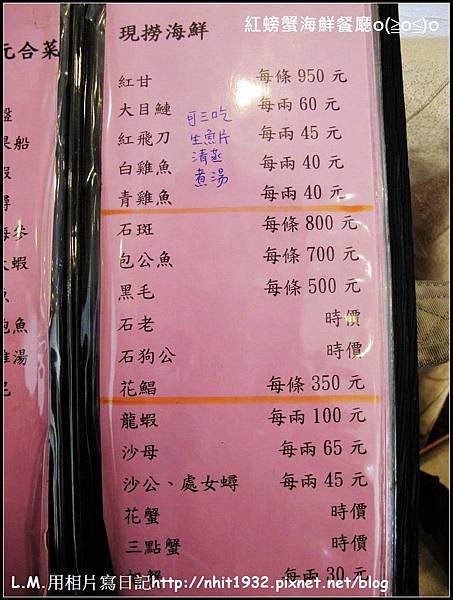 紅螃蟹海鮮餐廳o(≧o≦)o
元合菜
船
蝦
海參
蝦
鮑魚
雞湯
現撈海鮮
紅甘 每條 950 元
大目鰱 每兩 60 元
紅飛刀 每兩 45 元
白雞魚 每兩 40 元
青雞魚 每兩 40 元
可三吃
生魚片
清蒸
煮湯
石斑 每條 800 元
包公魚 每條 700 元
黑毛 每條 500 元
石老 時價
石狗公 時價
花鯧 每條 350 元
龍蝦 每兩 100 元
沙母 每兩 65 元
沙公、處女蟳 每兩 45 元
花蟹 時價
三點蟹 時價
每兩 30 元
L.M.用相片寫日記http://nhit1932.pixnet.net/blog